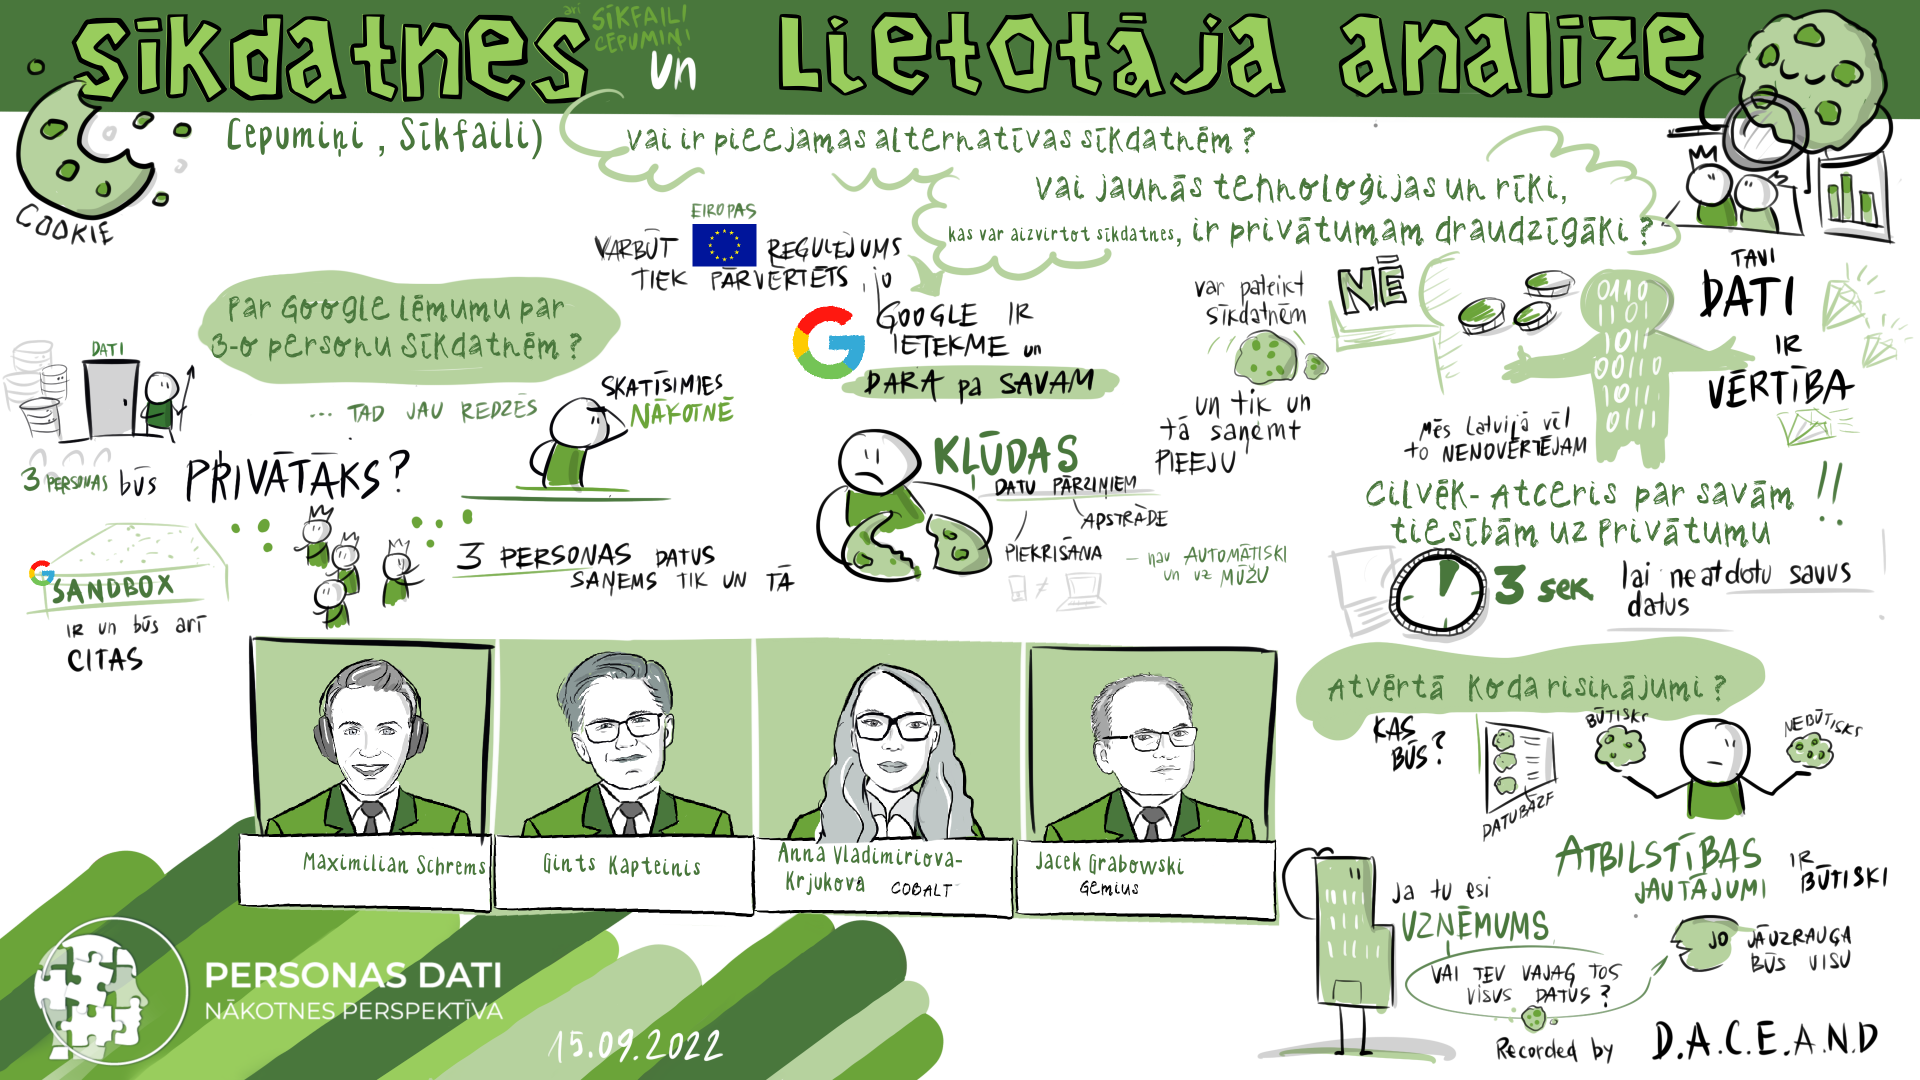 Sīkdatnes
arī SĪKFAILI
CEPUMIŅI
un
Lietotāja analīze
(Cepumiņi, Sīkfaili)
COOKIE
Vai ir pieejamas alternatīvas sīkdatnēm?
Vai jaunās tehnoloģijas un rīki,
kas var aizvirtot sīkdatnes, ir privātumam draudzīgāki?
EIROPAS
VARBŪT REGULĒJUMS
TIEK PĀRVĒRTĒTS, jo
GOOGLE IR
IETEKME un
DARA pa SAVAM
Par Google lēmumu par
3-o personu sīkdatnēm?
... TAD JAU REDZĒS
SKATĪSIMIES
NĀKOTNĒ
DATI
3 PERSONAS būs PRIVĀTĀKS?
SANDBOX
IR un būs arī
CITAS
3 PERSONAS DATUS
SAŅEMS TIK UN TĀ
KĻŪDAS
DATU PĀRZIŅIEM
APSTRĀDE
PIEKRIŠANA
≠
- nav AUTOMĀTISKI
un uz MŪŽU
var pateikt
sīkdatnēm
NĒ
un tik un
tā saņemt
PIEEJU
0110
1101
1011
00110
1011
0111
TAVI
DATI
IR
VĒRTĪBA
Mēs Latvijā vēl
to NENOVĒRTĒJAM
Cilvēk - Atceris par savām
tiesībām uz Privātumu !!
3 sek lai neatdotu savus
datus
Atvērtā Koda risinājumi?
KAS
BŪS?
DATUBĀZE
BŪTISKS
NEBŪTISKS
ATBILSTĪBAS
JAUTĀJUMI
IR
BŪTISKI
Ja tu esi
UZŅĒMUMS
VAI TEV VAJAG TOS
VISUS DATUS?
JO JĀUZRAUGA
BŪS VISU
Maximilian Schrems
Gints Kapteinis
Anna Vladimiriova-
Krjukova COBALT
Jacek Grabowski
Gemius
PERSONAS DATI
NĀKOTNES PERSPEKTĪVA
15.09.2022
Recorded by D.A.C.E.A.N.D